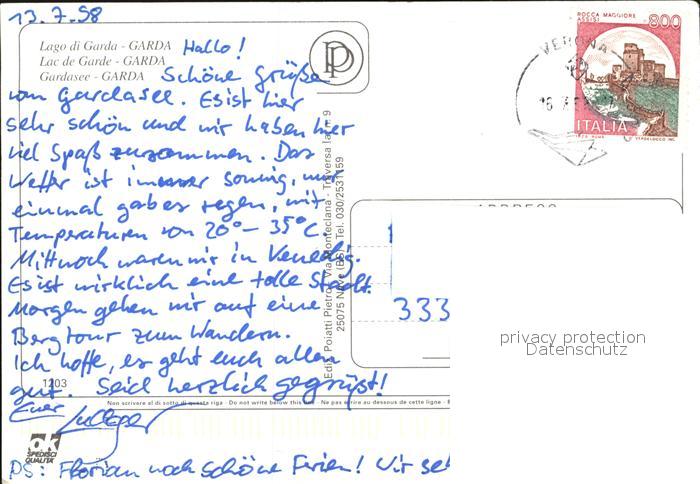 13.7.98
Lago di Garda - GARDA
Lac de Garde - GARDA
Gardasee - GARDA
Hallo!
Schöne Grüße
vom Gardasee. Es ist hier
sehr schön und wir haben hier
viel Spaß zusammen. Das
Wetter ist immer sonnig, nur
einmal gab es regen, mit
Temperaturen von 20° - 35° C.
Mittwoch waren wir in Venedig.
Es ist wirklich eine tolle Stadt.
Morgen gehen wir auf eine
Bergtour zum Wandern.
Ich hoffe, es geht euch allen
gut. Seid herzlich gegrüßt!
Euer
PS: Florian noch schöne Ferien! Wir se
1203
Non scrivere al di sotto di questa riga - Do not write below this line - Ne pas écrire au dessous de cette ligne -
ok
SPEDISCI
QUALITÀ
P
Ediz. Poiatti Pietro - Via Monteclana - Traversa Ia n. 9
25075 Nave (BS) - Tel. 030/2531159
VERONA
ROCCA MAGGIORE
ASSISI
800
ITALIA
333
privacy protection
Datenschutz